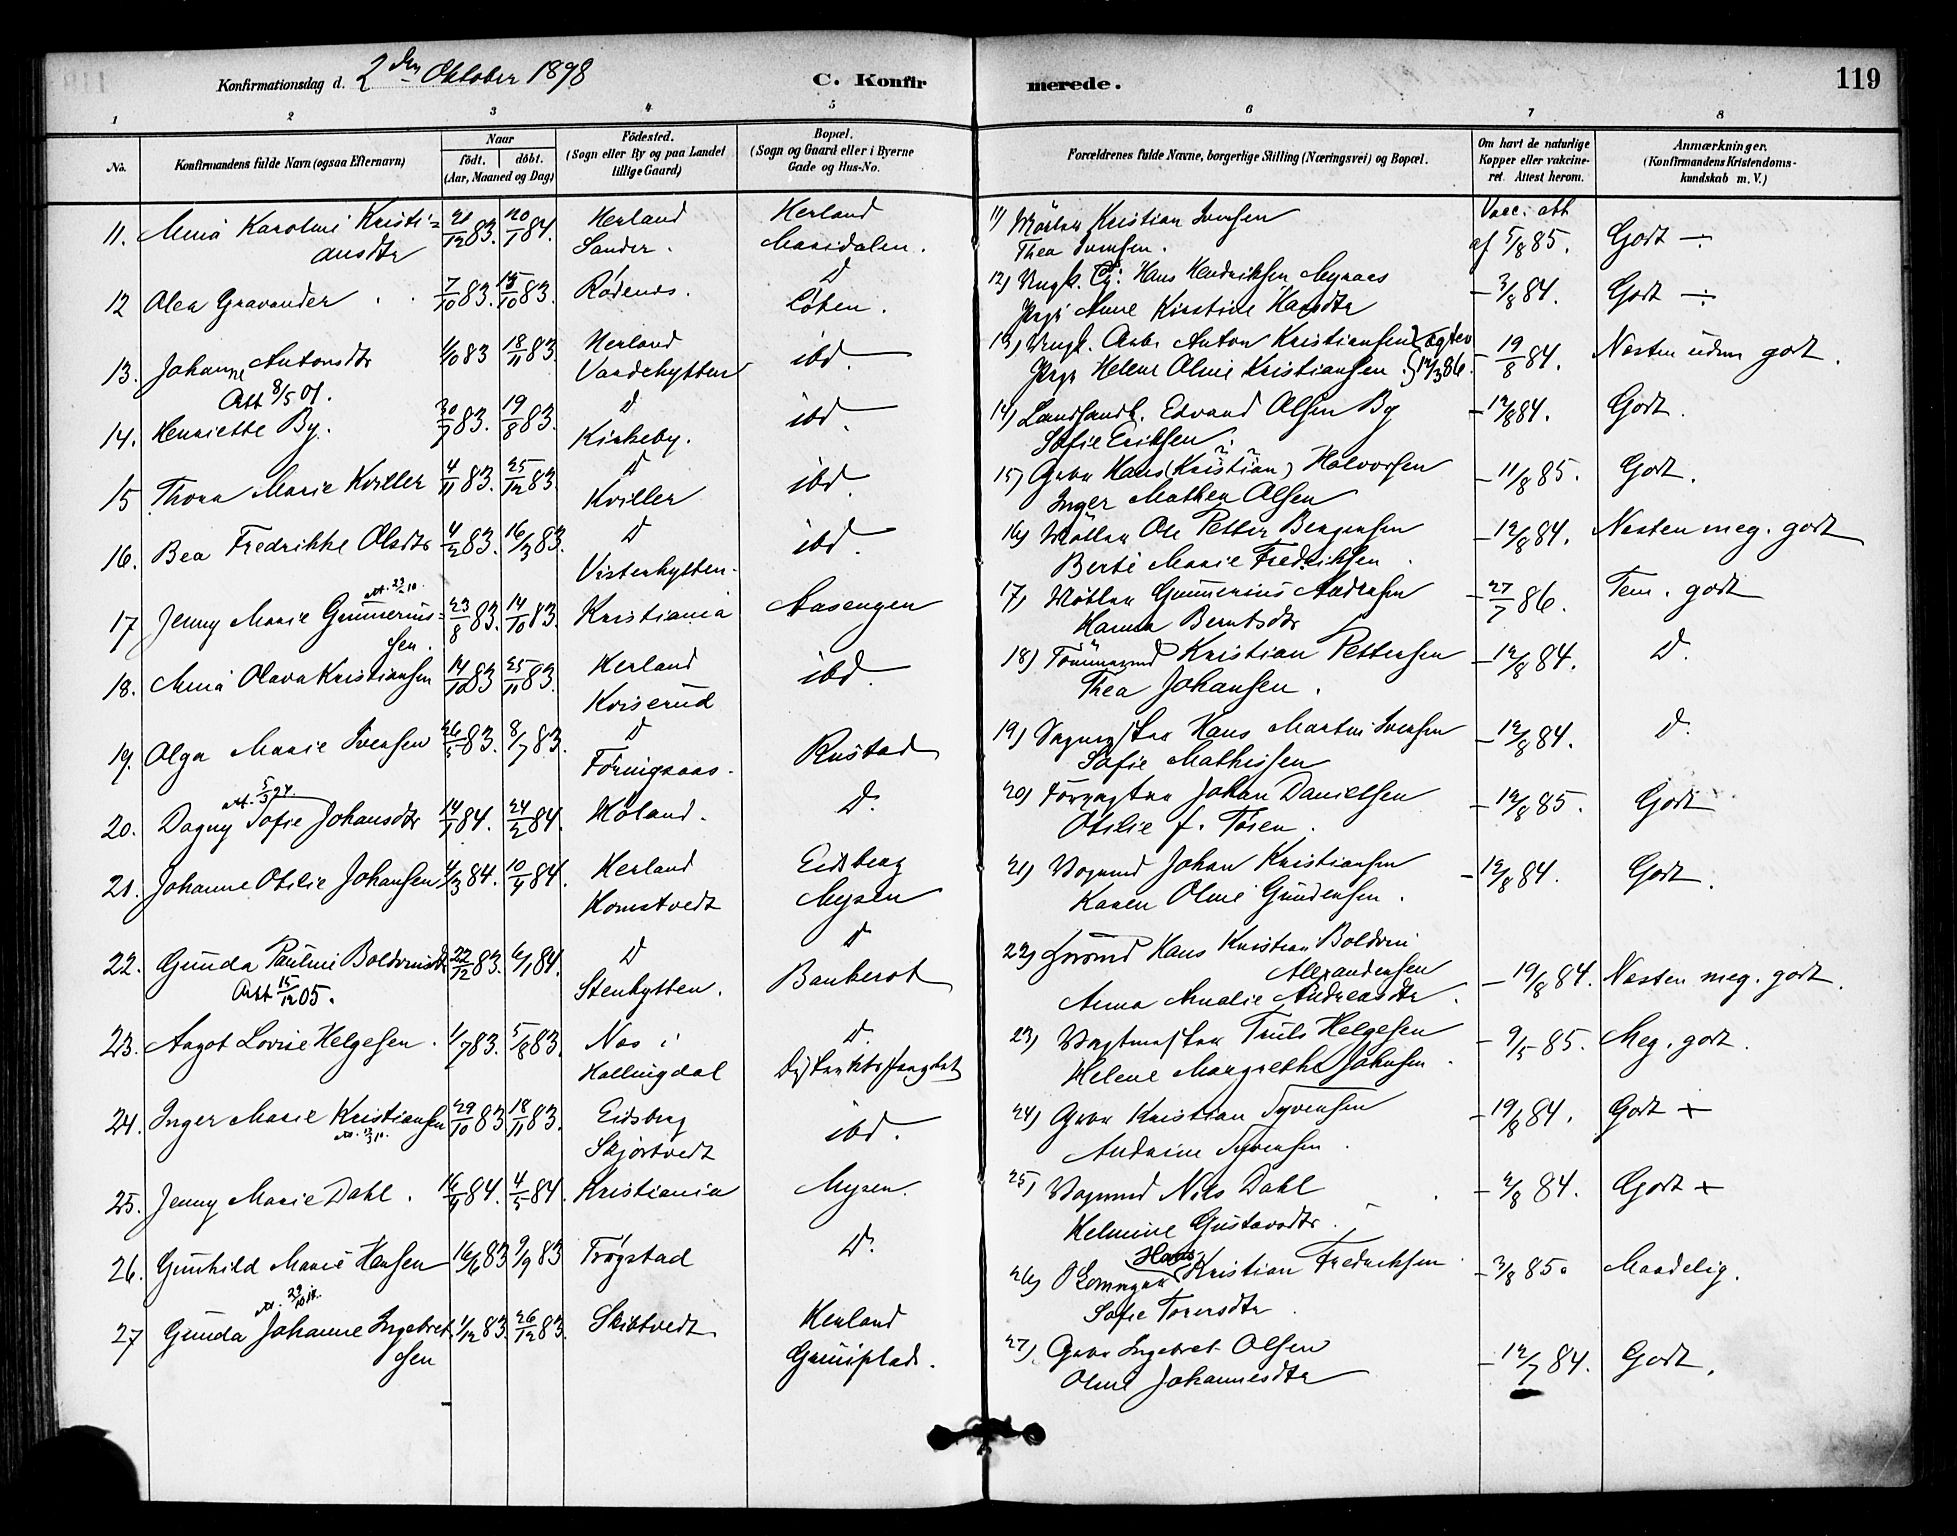 Konfirmationsdag d. 2den Oktober 1898
C. Konfirmerede.
119
1 2 3 4 5 6 7 8
No.
Konfirmandens fulde Navn (ogsaa Efternavn)
Naar
født. døbt.
(Aar, Maaned og Dag)
Fødested.
(Sogn eller By og paa Landet
tillige Gaard)
Bopæl.
(Sogn og Gaard eller i Byerne
Gade og Hus-No.
Forældrenes fulde Navne, borgerlige Stilling (Næringsvei) og Bopæl.
Om havt de naturlige
Kopper eller vakcine-
ret. Attest herom.
Anmærkninger.
(Konfirmandens Kristendoms-
kundskab m. V.)
11. Anna Karoline Kristi= 21/12 83. 20/1 84. Herland Herland 11) Kristian Svensen Vacc. att Godt ÷
ansdtr Sander. Mariedalen. Thea Svensen. af 5/8 85.
12 Olea Gravander 7/10 83. 15/10 83. Rødenes. D 12) Ungk. Hans Hendriksen Myraas - 3/8 84. Godt ÷
Løken. Pige Anne Kirstine Hansdtr
13. Johanne Antonsdtr 1/10 83 18/11 83. Herland ibd. 13) Ungk. Arbr Anton Kristiansen } - 19/8 84. Næsten udm godt.
Att 8/5 01. Vandehytten Pige Helene Oline Kristiansen. } 12/3 86.
14. Henriette By. 30/7 83. 19/8 83. D ibd. 14) Landhandl. Edvard Olsen By - 12/8 84. Godt.
Kirkeby. Sofie Eriksen
15 Thora Marie Kviller 4/11 83. 25/12 83. D ibd. 15) Gbr Hans (Kristian) Halvorsen - 11/8 85. Godt.
Kviller Inger Mathea Olsen
16. Bea Fredrikke Olsdtr 4/2 83. 16/3 83. D ibd. 16) Møller Ole Petter Bengersen - 12/8 84. Næsten meg. godt
Visterhytten. Berte Marie Fredriksen.
17 Jenny Marie Gunnerius= 23/8 83. 14/10 83. Kristiania Aasengen 17) Møller Gunnerius Andersen - 27/7 86. Tem. godt
sen. Hanna Berntsdtr
18. Anna Olava Kristiansen 14/10 83 25/11 83. Herland ibd. 18) Tømmermd Kristian Pettersen - 12/8 84. D.
Kviserud Thea Johansen.
19. Olga Marie Svensen 26/5 83. 8/7 83. D Rustad 19) Hans Martin Svensen - 12/8 84. D.
Føringsaas. Sofie Mathisen
20. Dagny Sofie Johansdtr 14/1 84. 24/2 84. Høland. D. 20) Forpagter Johan Danielsen - 12/8 85. Godt
Otilie f. Tosen.
21. Johanne Otilie Johansen 4/3 84. 10/4 84. Herland Eidsberg 21) Vognmd Johan Kristiansen - 12/8 84. Godt.
Homstvedt Mysen Karen Oline Gundersen.
22. Gunda Pauline Boldvinsdtr 22/12 83. 6/1 84. D D 22) Hans Kristian Boldvin
Att 15/12 05. Stenhytten. Bankerot Alexandersen - 19/8 84. Næsten meg. godt.
Anna Amalie Andreasdtr.
23. Aagot Lovise Helgesen. 1/7 83. 5/8 83. Nes i D. 23) Vagtmester Truls Helgesen - 9/5 85. Meg. godt.
Hallingdal Distriktsfængslet Helene Margrethe Johnsen.
24. Inger Marie Kristiansen 29/10 83 18/11 83. Eidsberg ibd. 24) Gbr Kristian Syversen - 19/8 84. Godt +
Skjørtvedt Andrine Syversen.
25. Jenny Marie Dahl. 16/4 84. 4/5 84. Kristiania Mysen. 25) Vognmd Nils Dahl - 2/8 84. Godt +
Helmine Gustavsdtr.
26. Gunhild Marie Hansen 16/6 83 9/9 83 Trøgstad D. 26) Skomager Hans Kristian Fredriksen - 3/8 85. Maadelig.
Sofie Torersdtr.
27 Gunda Johanne Ingebret 1/12 83. 26/12 83. Skibtvedt Herland 27) Gbr Ingebret Olsen - 12/7 84. Godt.
sen Oline Johannesdtr